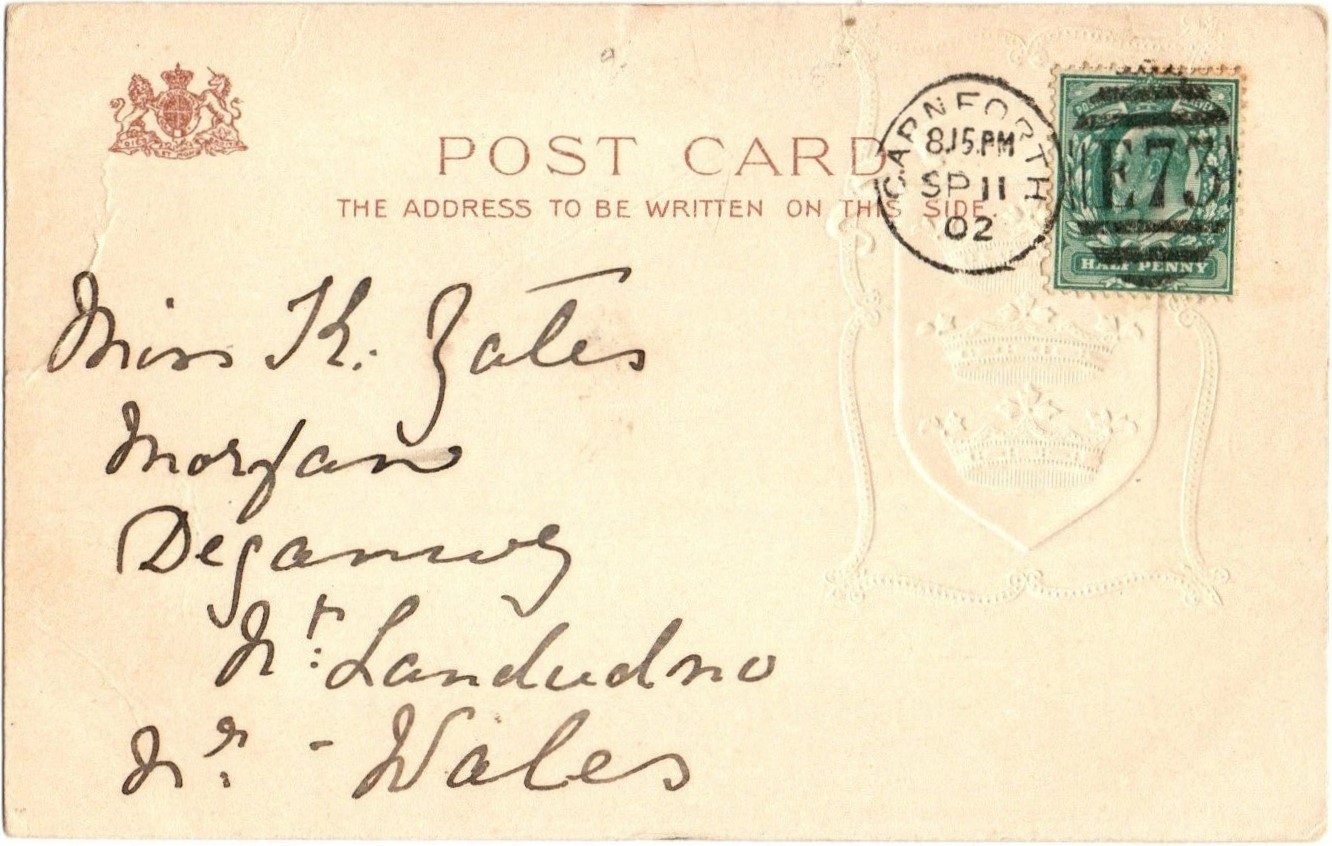 POST CARD
THE ADDRESS TO BE WRITTEN ON THIS SIDE.
CARNFORTH
8.15.PM
SP 11
02
E73
HALF PENNY
Miss K. Yates
Morfan
Deganwy
Nr. Landudno
Nr. - Wales